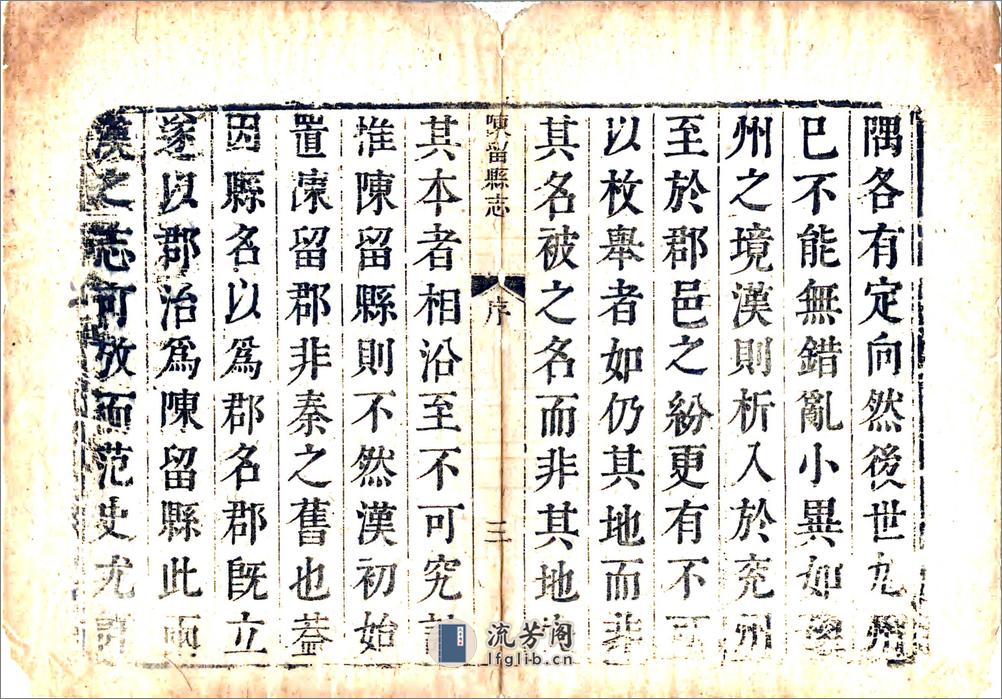 隅各有定向然後世九州
已不能無錯亂小異如
州之境漢則析入於兖州
至於郡邑之紛更有不可
以枚舉者如仍其地而非
其名被之名而非其地
陳留縣志
序
三
其本者相沿至不可究
惟陳留縣則不然漢初始
置陳留郡非秦之舊也葢
因縣名以爲郡名郡既立
遂以郡治爲陳留縣此兩
漢之志可攷而范史尤
流芳阁
lfglib.cn